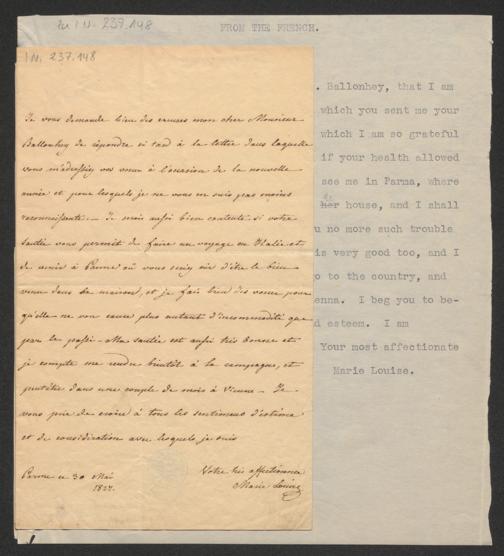 zu I N. 237.148
FROM THE FRENCH.
I N. 237.148
Je vous demande bien des excuses mon cher Monsieur
Ballonhey de répondre si tard à la lettre dans laquelle
vous m'adressiez vos vœux à l'occasion de la nouvelle
année et pour lesquels je ne vous en suis pas moins
reconnaissante. Je serais aussi bien contente si votre
santé vous permit de faire un voyage en Italie et
de venir à Parme où vous seriez sûr d'être le bien
venu dans sa maison, et je fais bien des vœux pour
qu'elle ne vous cause plus autant d'incommodité que
par le passé. Ma santé est aussi très bonne et
je compte me rendre bientôt à la campagne, et
peutêtre dans une couple de mois à Vienne. Je
vous prie de croire à tous les sentimens d'estime
et de considération avec lesquels je suis
Votre très affectionnée
Marie Louise
Parme ce 30 Mai
. Ballonhey, that I am
which you sent me your
which I am so grateful
if your health allowed
see me in Parma, where
her house, and I shall
u no more such trouble
is very good too, and I
o to the country, and
enna. I beg you to be-
d esteem. I am
Your most affectionate
Marie Louise.